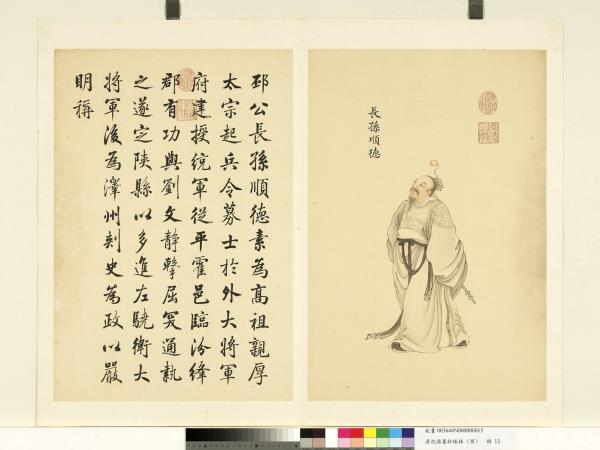 長孫順德
邳公長孫順德素為高祖親厚
太宗起兵令募士於外大將軍
府建授統軍從平霍邑臨汾絳
郡有功與劉文靜擊屈突通執
之遂定陝縣以多進左驍衛大
將軍後為澤州刺史為政以嚴
明稱
故畫 003644N000000015
墨妙珠林（酉） 冊 15